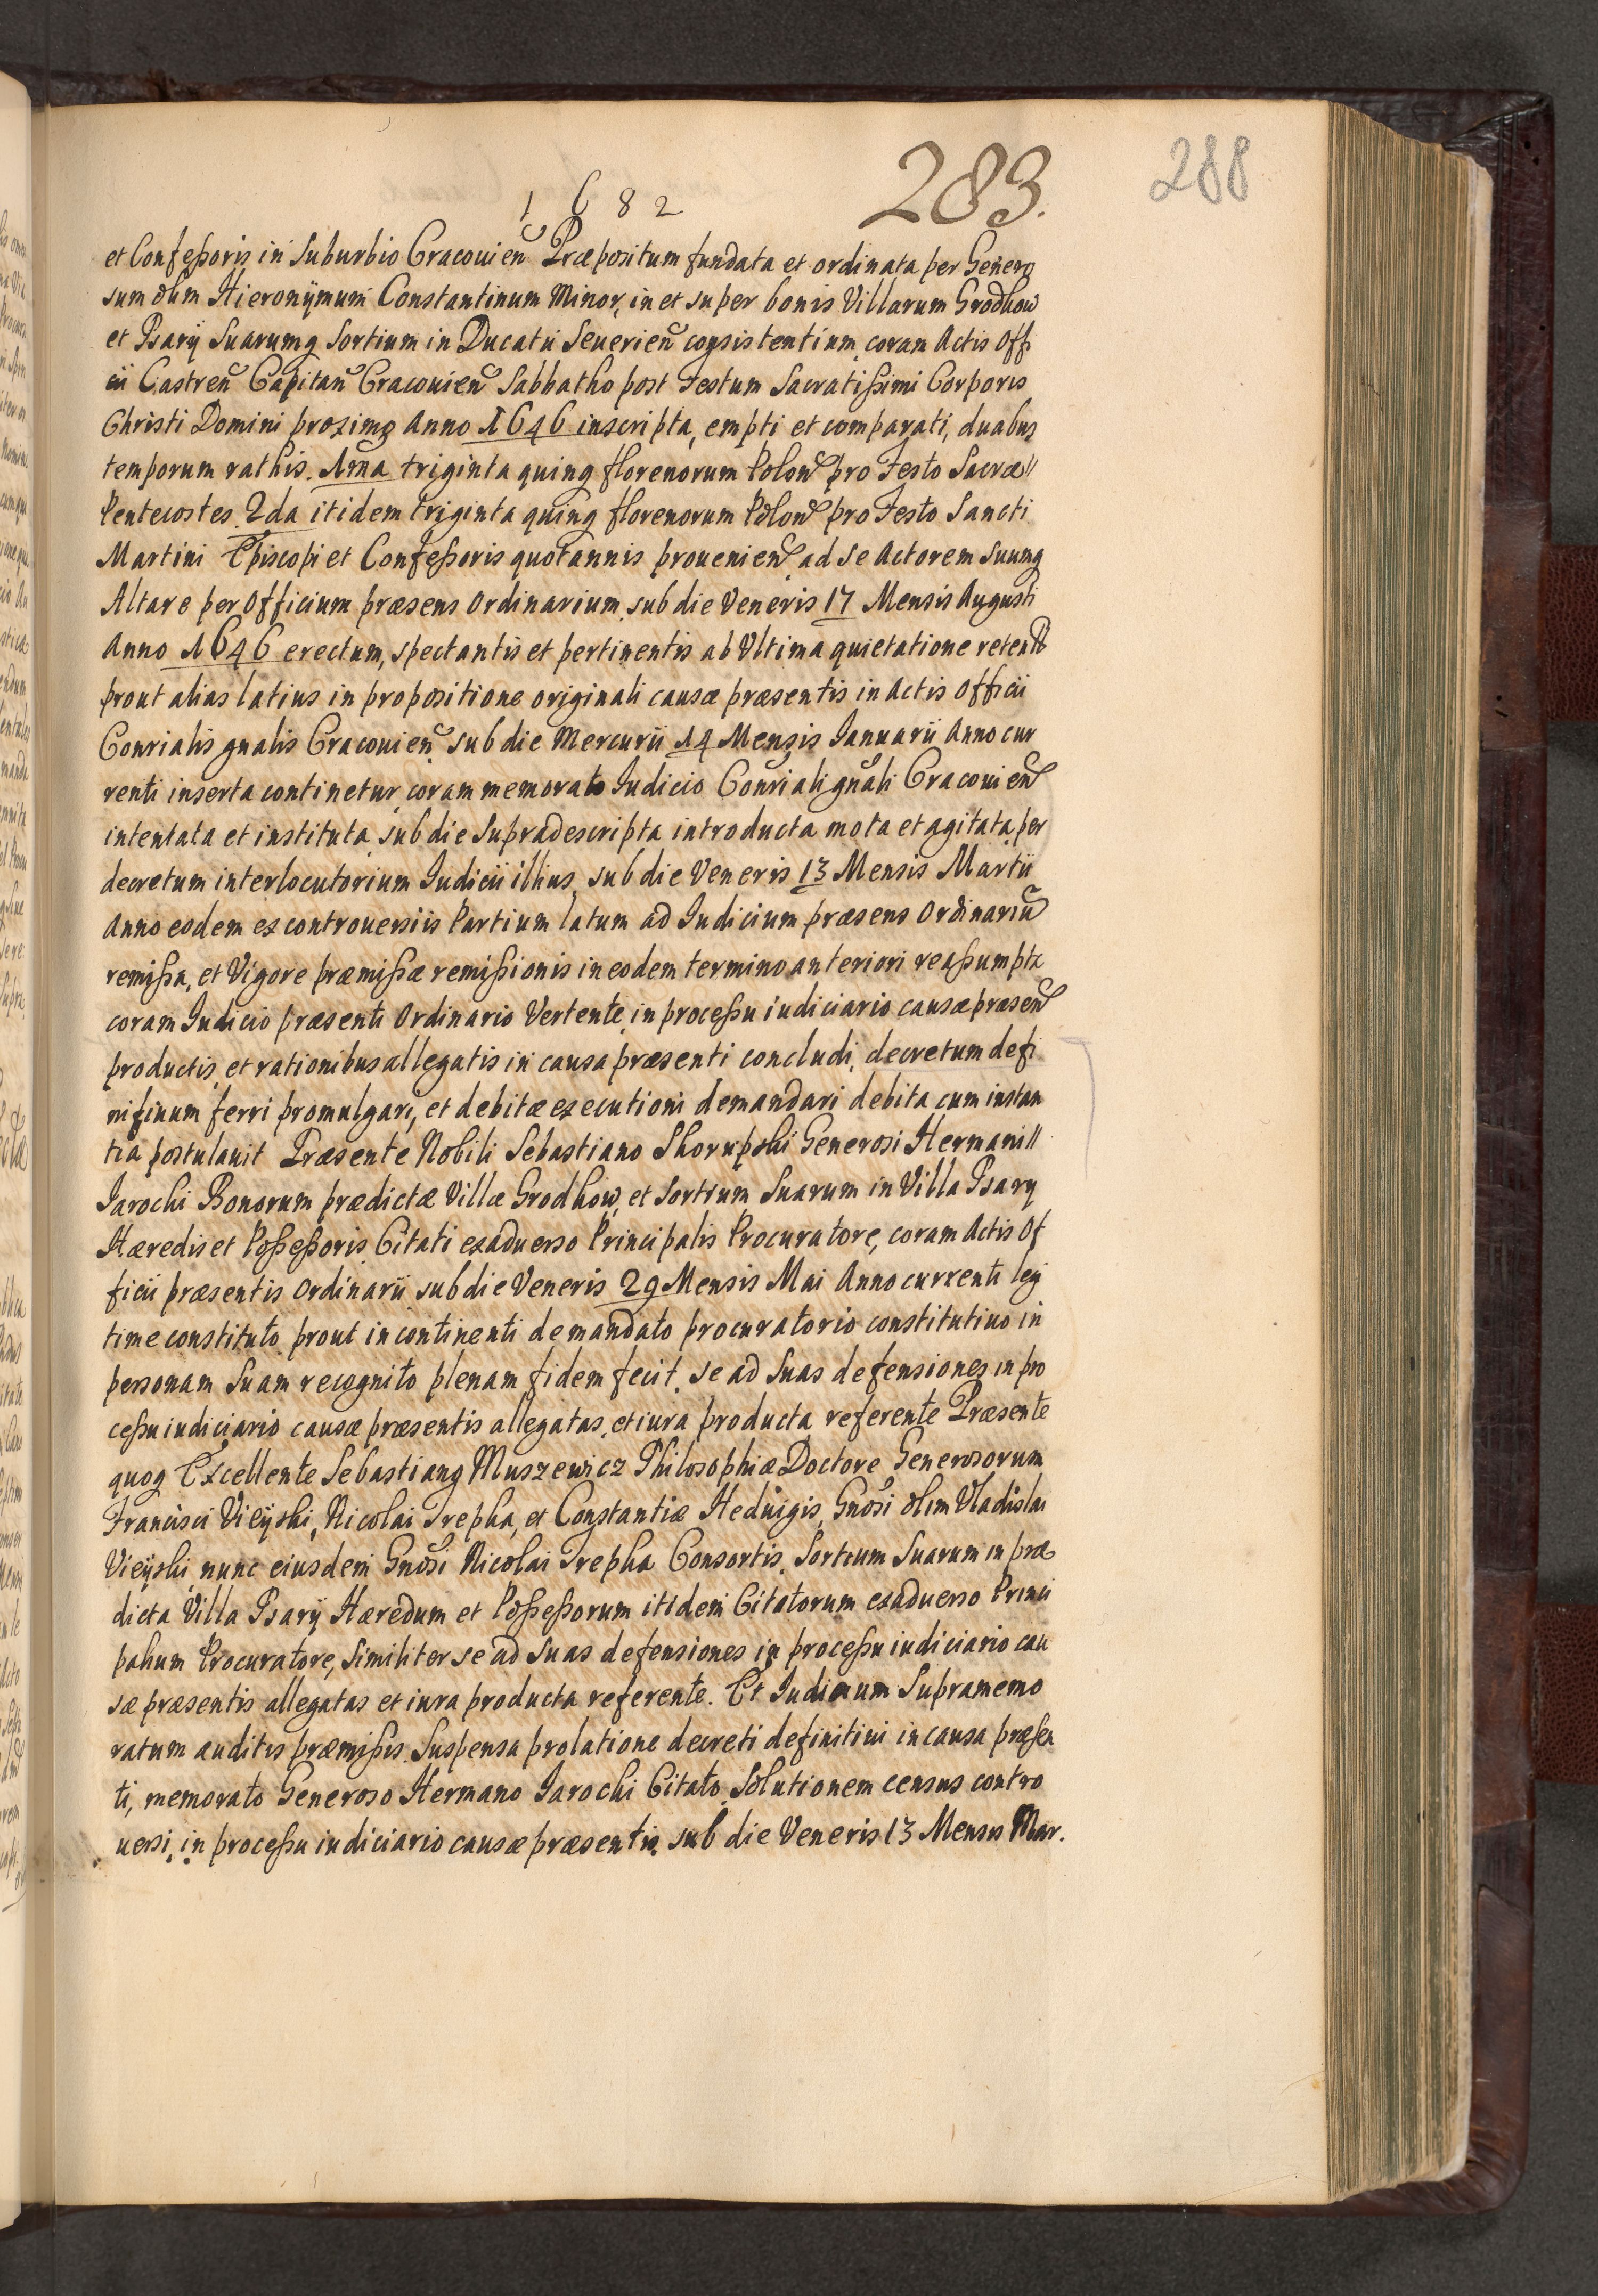 288
283.
1682
et Confeßoris in Suburbio Cracouien Præpositum fundata et ordinata per Genero
sum olim Hieronÿmum Constantinum Minor, in et super bonis Villarum Grodkow
et Psarÿ Suarumq Sortium in Ducatu Seuerien consistentium coram Actis Offi
cii Castren Capitan Cracouien Sabbatho post Festum Sacratißimi Corporis
Christi Domini proximo Anno 1646 inscripta, empti et comparati, duabus
temporum rathis. 1ma triginta quinq florenorum Polon pro Festo Sacræ
Pentecostes 2da itidem triginta quinq florenorum Polon pro Festo Sancti
Martini Episcopi et Confeßoris quotannis prouenien ad se Actorem suumq
Altare per Officium præsens Ordinarium sub die Veneris 17 Mensis Augusti
Anno 1646 erectum, spectantis et pertinentis ab Vltima quietatione retenti
prout alias latius in propositione originali causæ præsentis in Actis Officii
Conrialis gnalis Cracouien sub die Mercurii 14 Mensis Januarii Anno cur
renti inserta continetur coram memorato Judicio Conriali gnali Cracouien
intentata et instituta sub die Supradescripta introducta mota et agitata per
decretum interlocutorium Judicii illius, sub die Veneris 13 Mensis Martii
Anno eodem ex controuersiis Partium latum ad Judicium præsens Ordinariu
remißa, et Vigore præmißæ remißionis in eodem termino anteriori reaßumptæ
coram Judicio præsenti Ordinario Vertente in proceßu iudiciario causæ præsen
productis et rationibus allegatis in causa præsenti concludi, decretum defi
nitiuum ferri promulgari, et debitæ executioni demandari debita cum instan
tia postulauit Præsente Nobili Sebastiano Skorupski Generosi Hermani
Jarocki Bonorum prædictæ Villæ Grodkow, et Sortium Suarum in Villa Psary
Hæredis et Poßeßoris Citati exaduerso Principalis Procuratore, coram Actis Of
ficii præsentis Ordinarii sub die Veneris 29 Mensis Mai Anno currenti legi
time constituto prout incontinenti de mandato procuratorio constitutiuo in
personam Suam recognito plenam fidem fecit, se ad Suas defensiones in pro
ceßu iudiciario causæ præsentis allegatas et iura producta referente Præsente
quoq Excellente Sebastiano Muszewicz Philosophiæ Doctore Generosorum
Francisci Vieÿski, Nicolai Trepka, et Constantiæ Heduigis, Gnosi olim Vladislai
Vieÿski nunc eiusdem Gnosi Nicolai Trepka Consortis, Sortium Suarum in præ
dicta Villa Psarÿ Hæredum et Poßeßorum itidem Citatorum exaduerso Princi
palium Procuratore, Similiter se ad Suas defensiones in proceßu iudiciario cau
sæ præsentis allegatas et iura producta referente. Et Judicium Supramemo
ratum auditis præmißis Suspensa prolatione decreti definitiui in causa præsen
ti, memorato Generoso Hermano Jarocki Citato Solutionem census contro
uersi, in proceßu iudiciario causæ præsentis sub die Veneris 13 Mensis Mar.